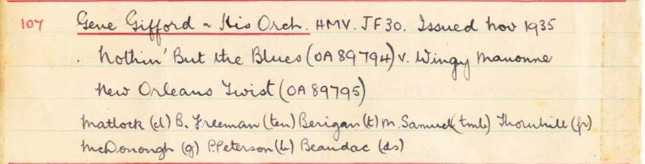 107 Gene Gifford & His Orch. HMV. JF30. Issued Nov 1935
Nothin' But the Blues (OA89794) v. Wingy Manonne
New Orleans Twist (OA89795)
Matlock (cl) B. Freeman (ten) Berigan (t) M. Samuel (tmb) Thornhill (p)
McDonough (g) P. Peterson (b) Beaudac (ds)